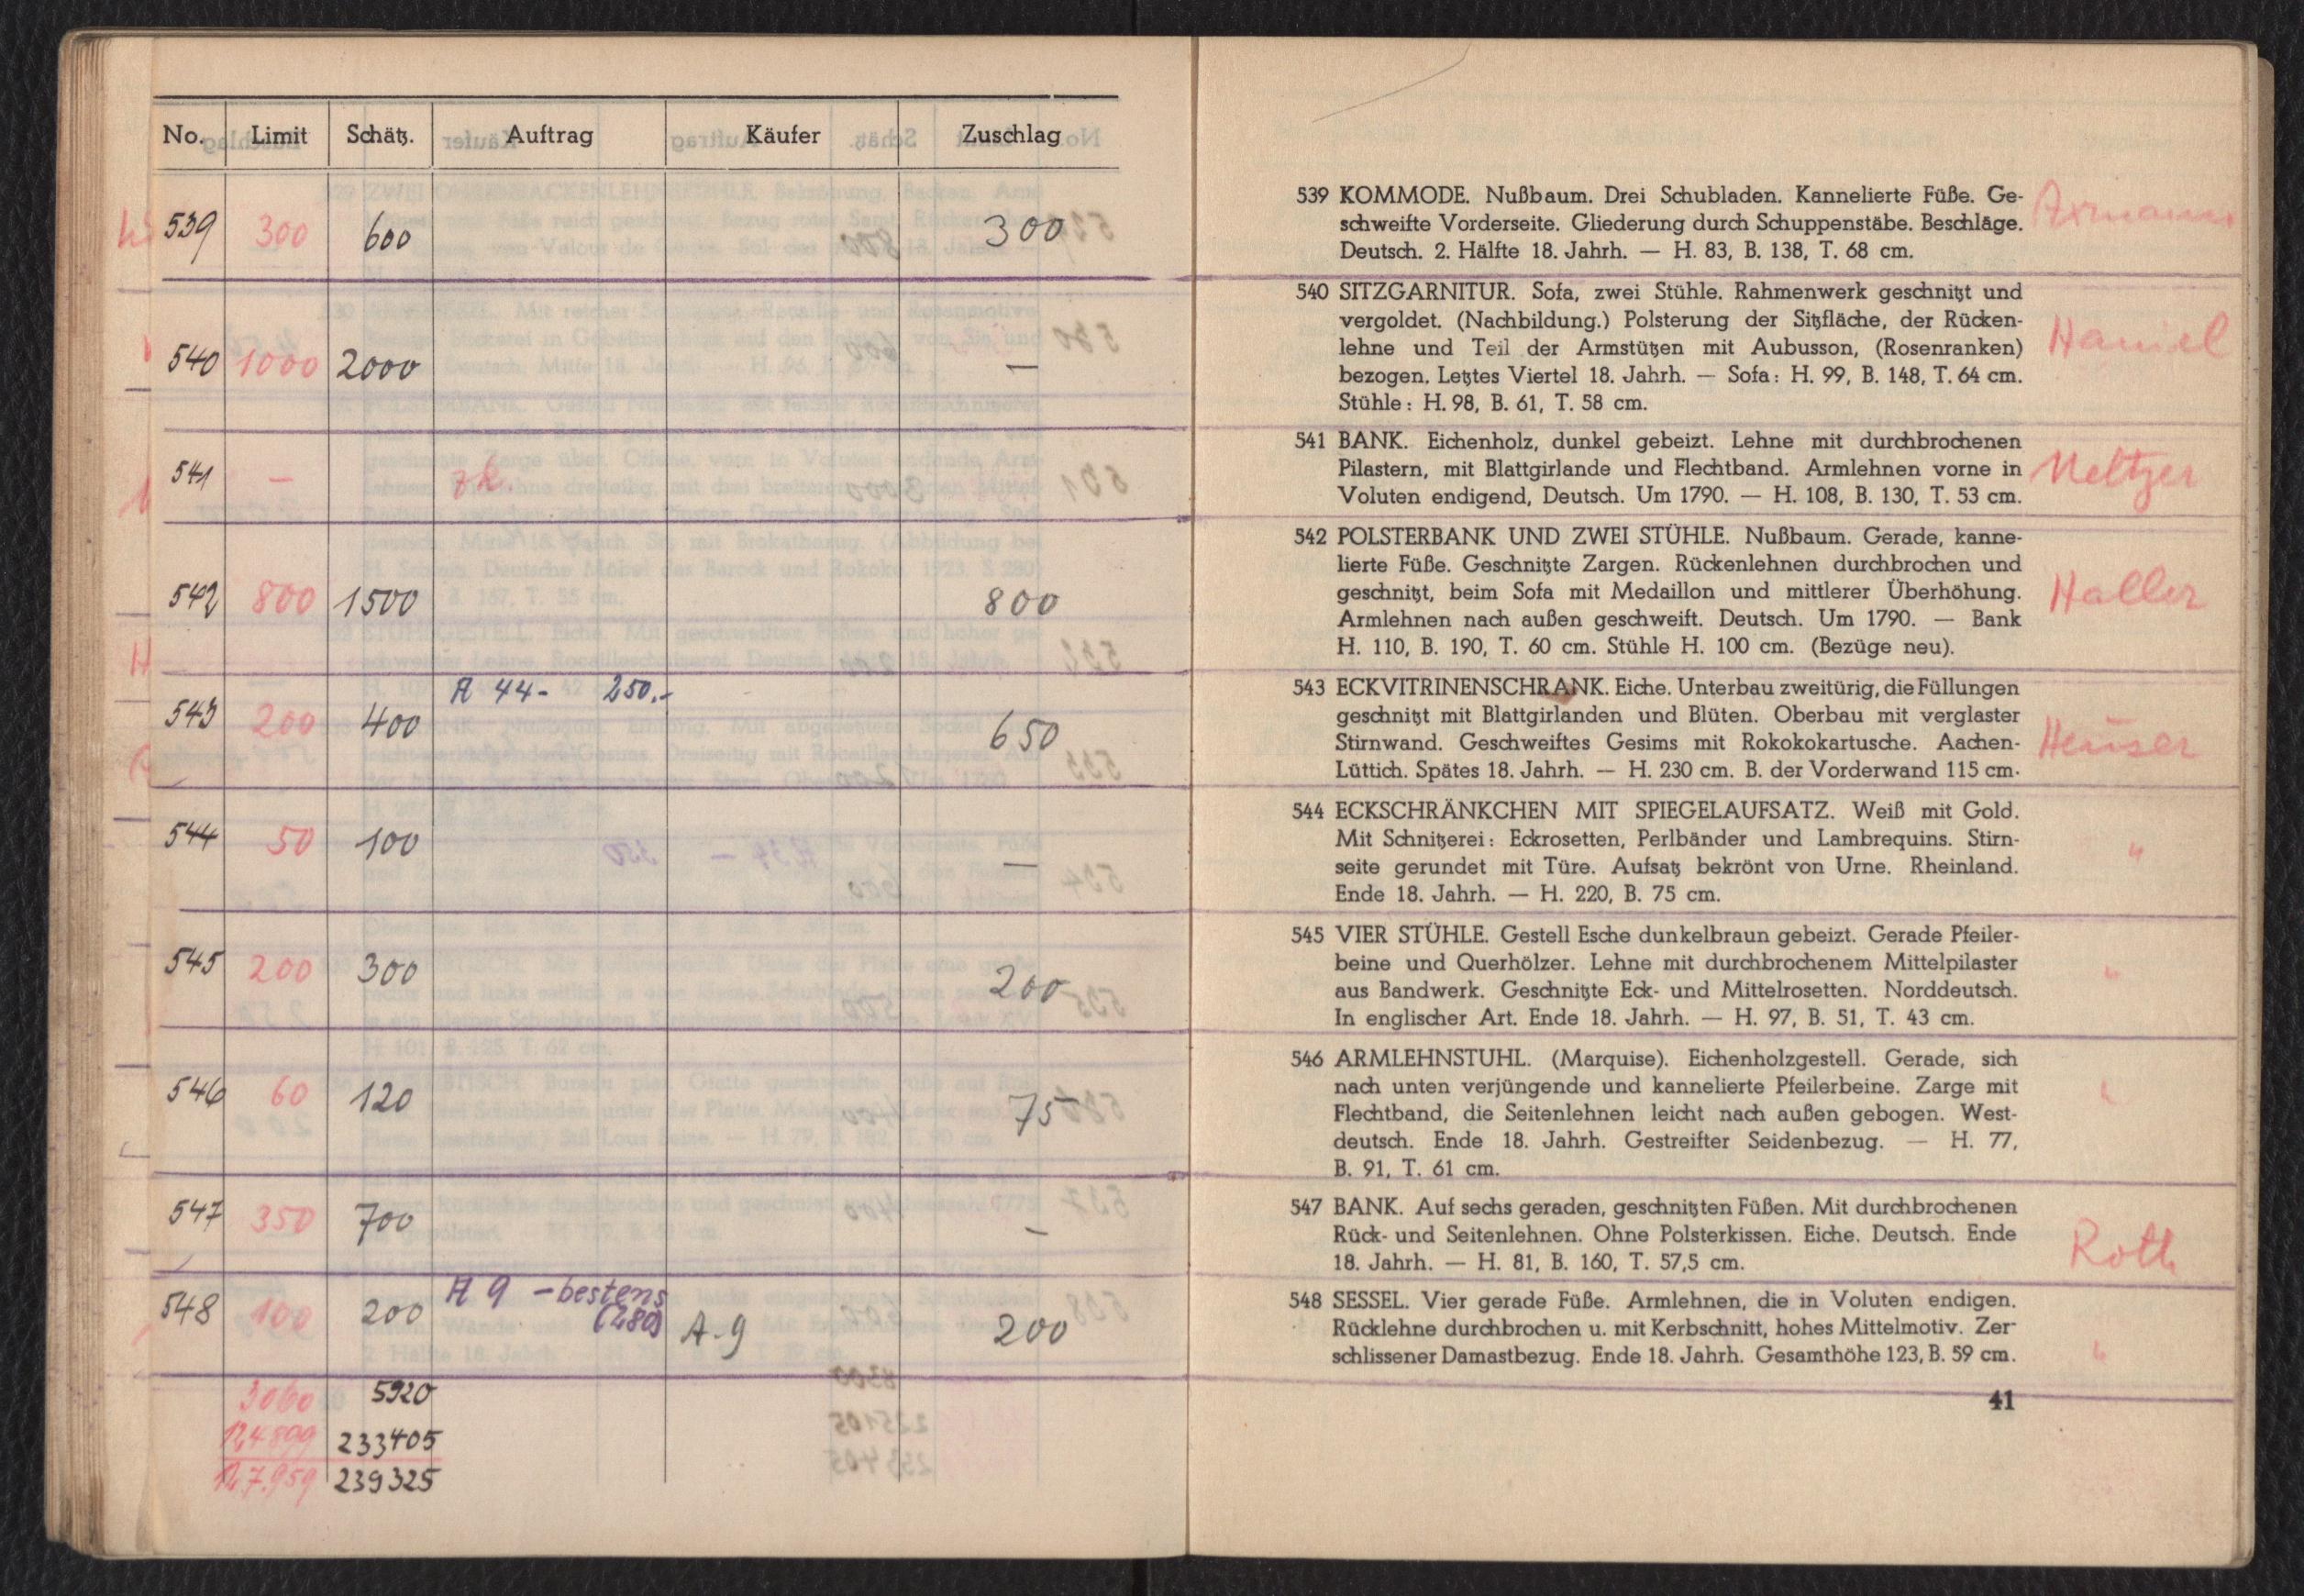 No. Limit Schätz. Auftrag Käufer Zuschlag
539 300 600 300
540 1000 2000 —
541 — zk.
542 800 1500 800
A 44- 250.-
543 200 400 650
544 50 100 —
545 200 300 200
546 60 120 75
547 350 700 –
A 9 - bestens
(280)
548 100 200 A. 9 200
3060 5920
124899 233405
127.959 239325
539 KOMMODE. Nußbaum. Drei Schubladen. Kannelierte Füße. Ge-
schweifte Vorderseite. Gliederung durch Schuppenstäbe. Beschläge.
Deutsch. 2. Hälfte 18. Jahrh. — H. 83, B. 138, T. 68 cm.
540 SITZGARNITUR. Sofa, zwei Stühle. Rahmenwerk geschnitzt und
vergoldet. (Nachbildung.) Polsterung der Sitzfläche, der Rücken-
lehne und Teil der Armstützen mit Aubusson, (Rosenranken)
bezogen. Letztes Viertel 18. Jahrh. — Sofa: H. 99, B. 148, T. 64 cm.
Stühle: H. 98, B. 61, T. 58 cm.
541 BANK. Eichenholz, dunkel gebeizt. Lehne mit durchbrochenen
Pilastern, mit Blattgirlande und Flechtband. Armlehnen vorne in Meltzer
Voluten endigend, Deutsch. Um 1790. — H. 108, B. 130, T. 53 cm.
542 POLSTERBANK UND ZWEI STÜHLE. Nußbaum. Gerade, kanne-
lierte Füße. Geschnitzte Zargen. Rückenlehnen durchbrochen und
geschnitzt, beim Sofa mit Medaillon und mittlerer Überhöhung. Haller
Armlehnen nach außen geschweift. Deutsch. Um 1790. — Bank
H. 110, B. 190, T. 60 cm. Stühle H. 100 cm. (Bezüge neu).
543 ECKVITRINENSCHRANK. Eiche. Unterbau zweitürig, die Füllungen
geschnitzt mit Blattgirlanden und Blüten. Oberbau mit verglaster
Stirnwand. Geschweiftes Gesims mit Rokokokartusche. Aachen- Heuser
Lüttich. Spätes 18. Jahrh. — H. 230 cm. B. der Vorderwand 115 cm.
544 ECKSCHRÄNKCHEN MIT SPIEGELAUFSATZ. Weiß mit Gold.
Mit Schnitzerei: Eckrosetten, Perlbänder und Lambrequins. Stirn- "
seite gerundet mit Türe. Aufsatz bekrönt von Urne. Rheinland.
Ende 18. Jahrh. — H. 220, B. 75 cm.
545 VIER STÜHLE. Gestell Esche dunkelbraun gebeizt. Gerade Pfeiler-
beine und Querhölzer. Lehne mit durchbrochenem Mittelpilaster "
aus Bandwerk. Geschnitzte Eck- und Mittelrosetten. Norddeutsch.
In englischer Art. Ende 18. Jahrh. — H. 97, B. 51, T. 43 cm.
546 ARMLEHNSTUHL. (Marquise). Eichenholzgestell. Gerade, sich
nach unten verjüngende und kannelierte Pfeilerbeine. Zarge mit "
Flechtband, die Seitenlehnen leicht nach außen gebogen. West-
deutsch. Ende 18. Jahrh. Gestreifter Seidenbezug. — H. 77,
B. 91, T. 61 cm.
547 BANK. Auf sechs geraden, geschnitzten Füßen. Mit durchbrochenen
Rück- und Seitenlehnen. Ohne Polsterkissen. Eiche. Deutsch. Ende Roth
18. Jahrh. — H. 81, B. 160, T. 57,5 cm.
548 SESSEL. Vier gerade Füße. Armlehnen, die in Voluten endigen.
Rücklehne durchbrochen u. mit Kerbschnitt, hohes Mittelmotiv. Zer-
schlissener Damastbezug. Ende 18. Jahrh. Gesamthöhe 123, B. 59 cm. "
41